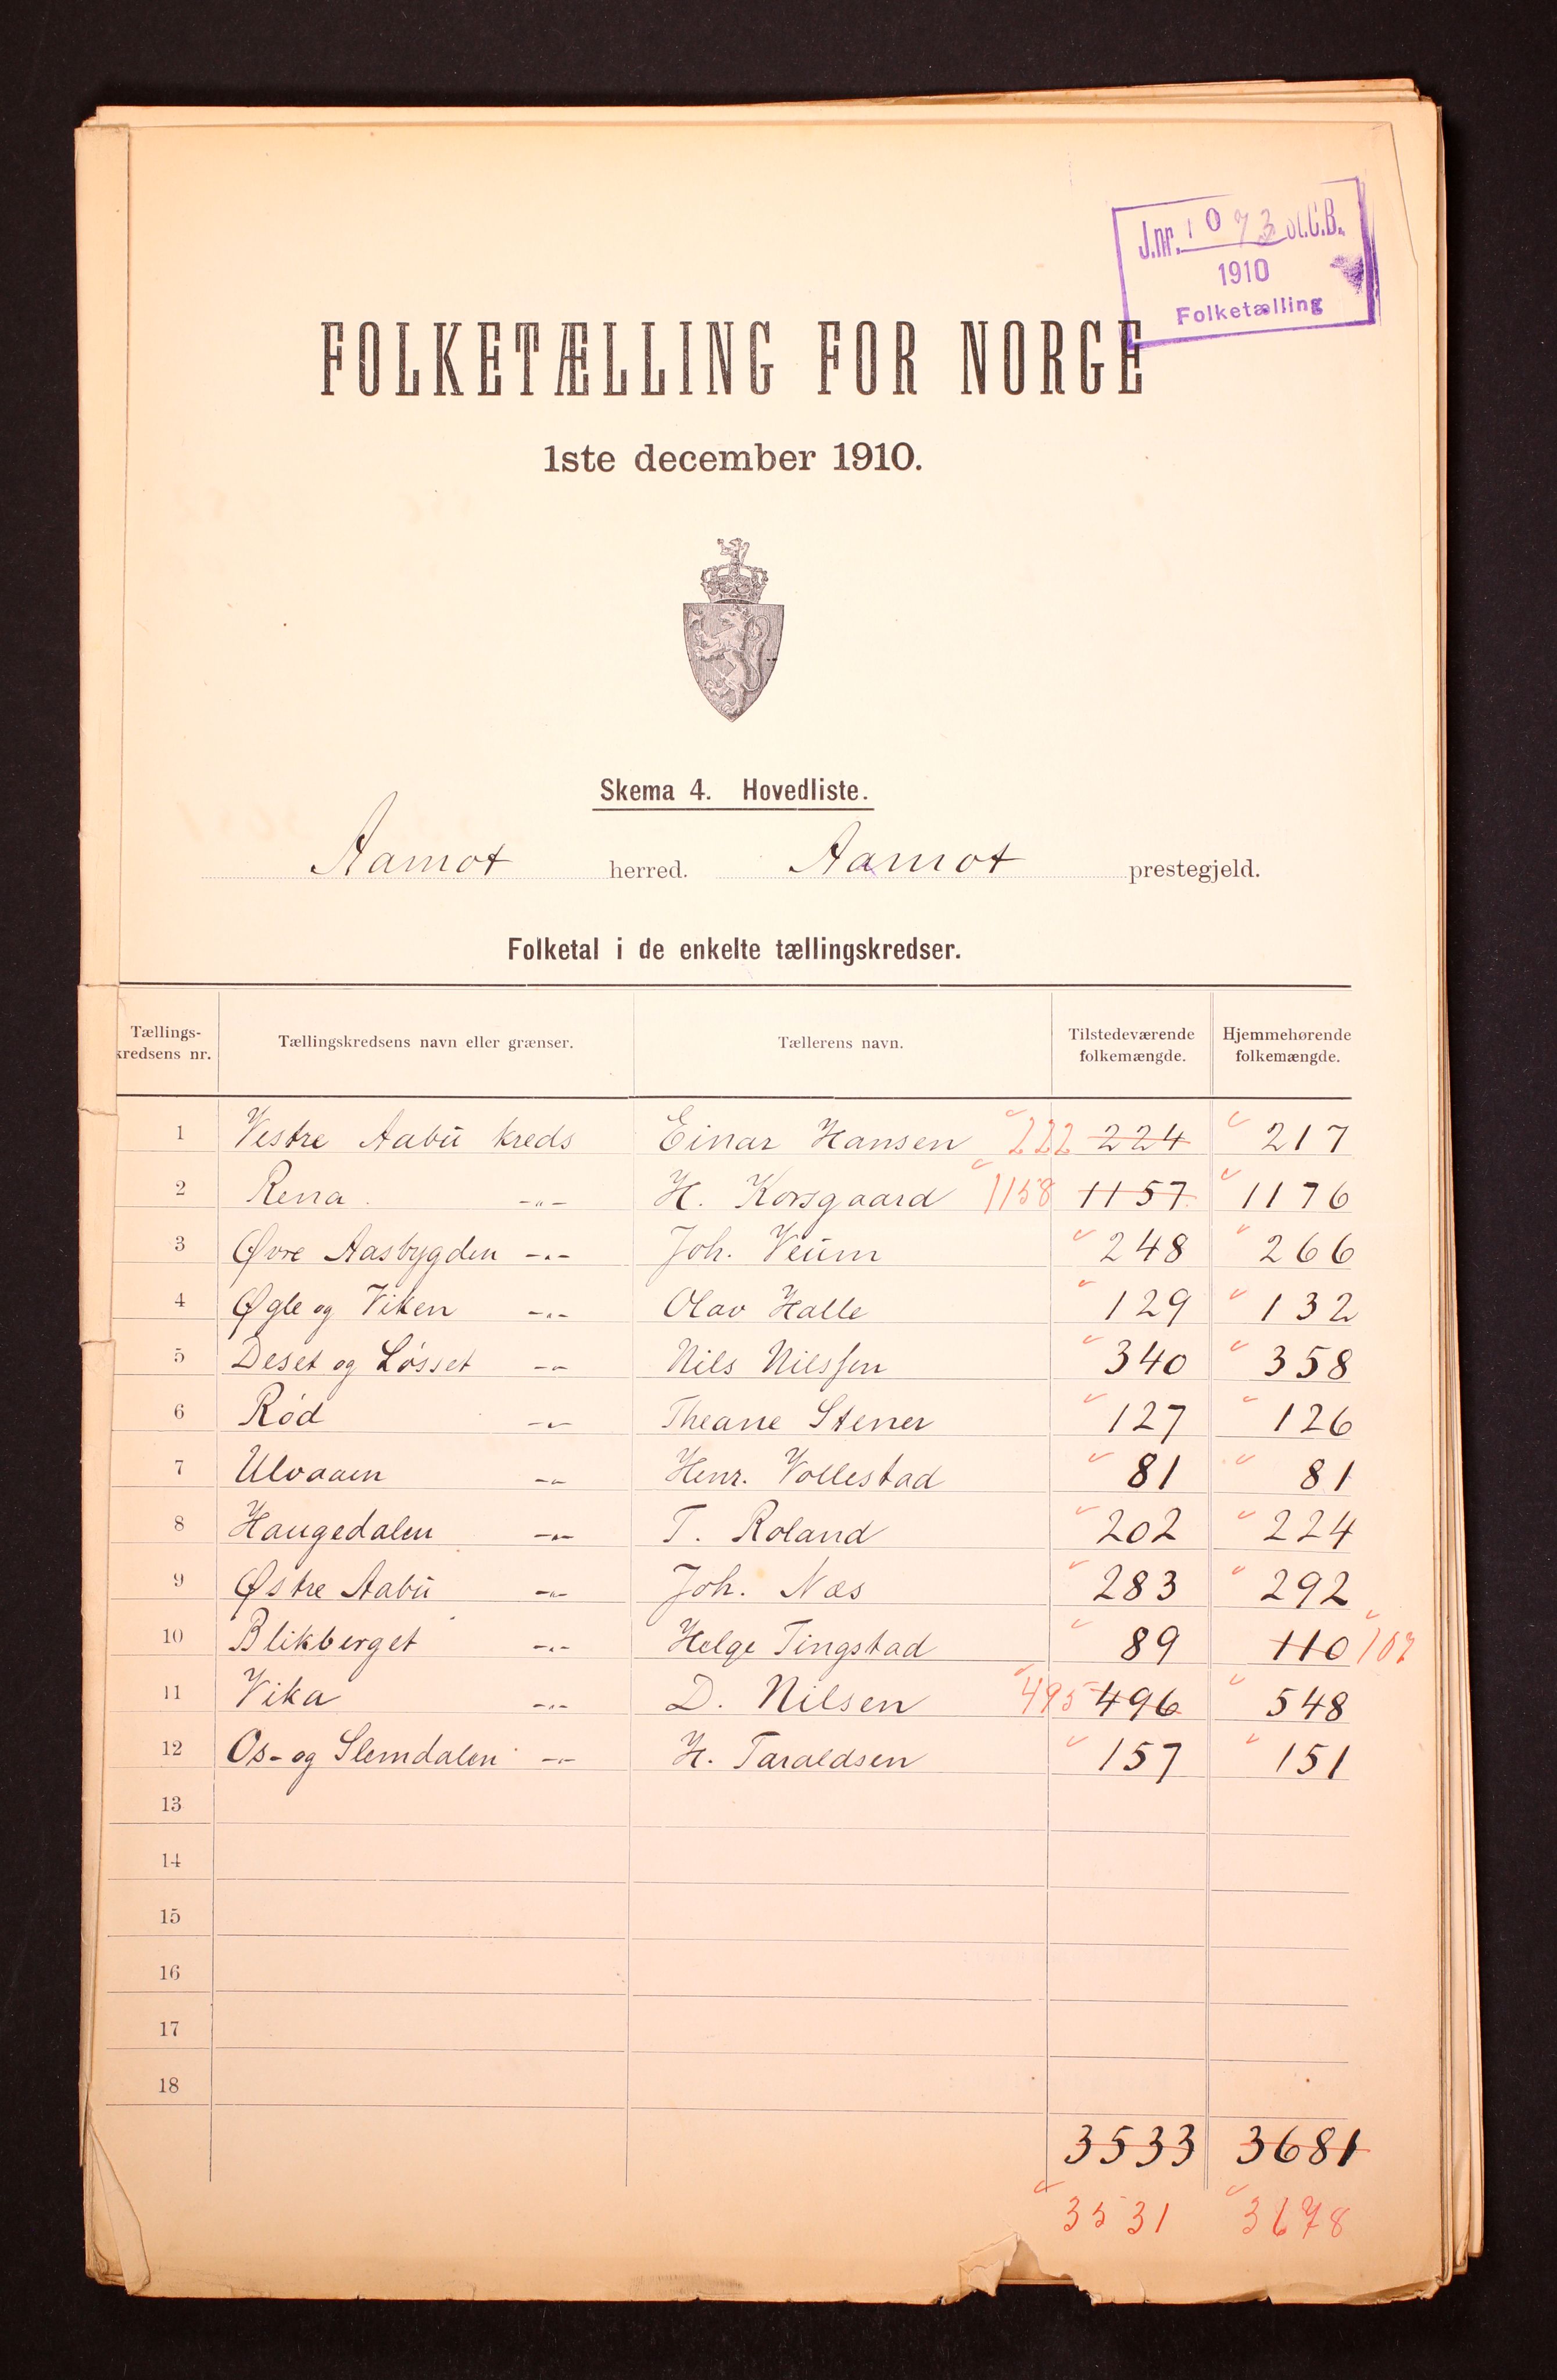 J.nr. 1073 St.C.B.
1910
Folketælling
FOLKETÆLLING FOR NORGE
1ste december 1910.
Skema 4. Hovedliste.
Aamot herred. Aamot prestegjeld.
Folketal i de enkelte tællingskredser.
Tællings-
kredsens nr. Tællingskredsens navn eller grænser. Tællerens navn. Tilstedeværende
folkemængde. Hjemmehørende
folkemængde.
1 Vestre Aabu kreds Einar Hansen 222 224 217
2 Rena -"- H. Korsgaard 1158 1157 1176
3 Øvre Aasbygden -"- Joh. Veum 248 266
4 Øgle og Viken -"- Olav Halle 129 132
5 Deset og Løsset -"- Nils Nilssen 340 358
6 Rød -"- Theane Stener 127 126
7 Ulvaaen -"- Henr. Vollestad 81 81
8 Haugedalen -"- T. Roland 202 224
9 Østre Aabu -"- Joh. Næs 283 292
10 Blikberget -"- Helge Tingstad 89 110 107
11 Vika -"- D. Nilsen 495 496 548
12 Os- og Slemdalen -"- H. Taraldsen 157 151
13
14
15
16
17
18
3533 3681
3531 3678